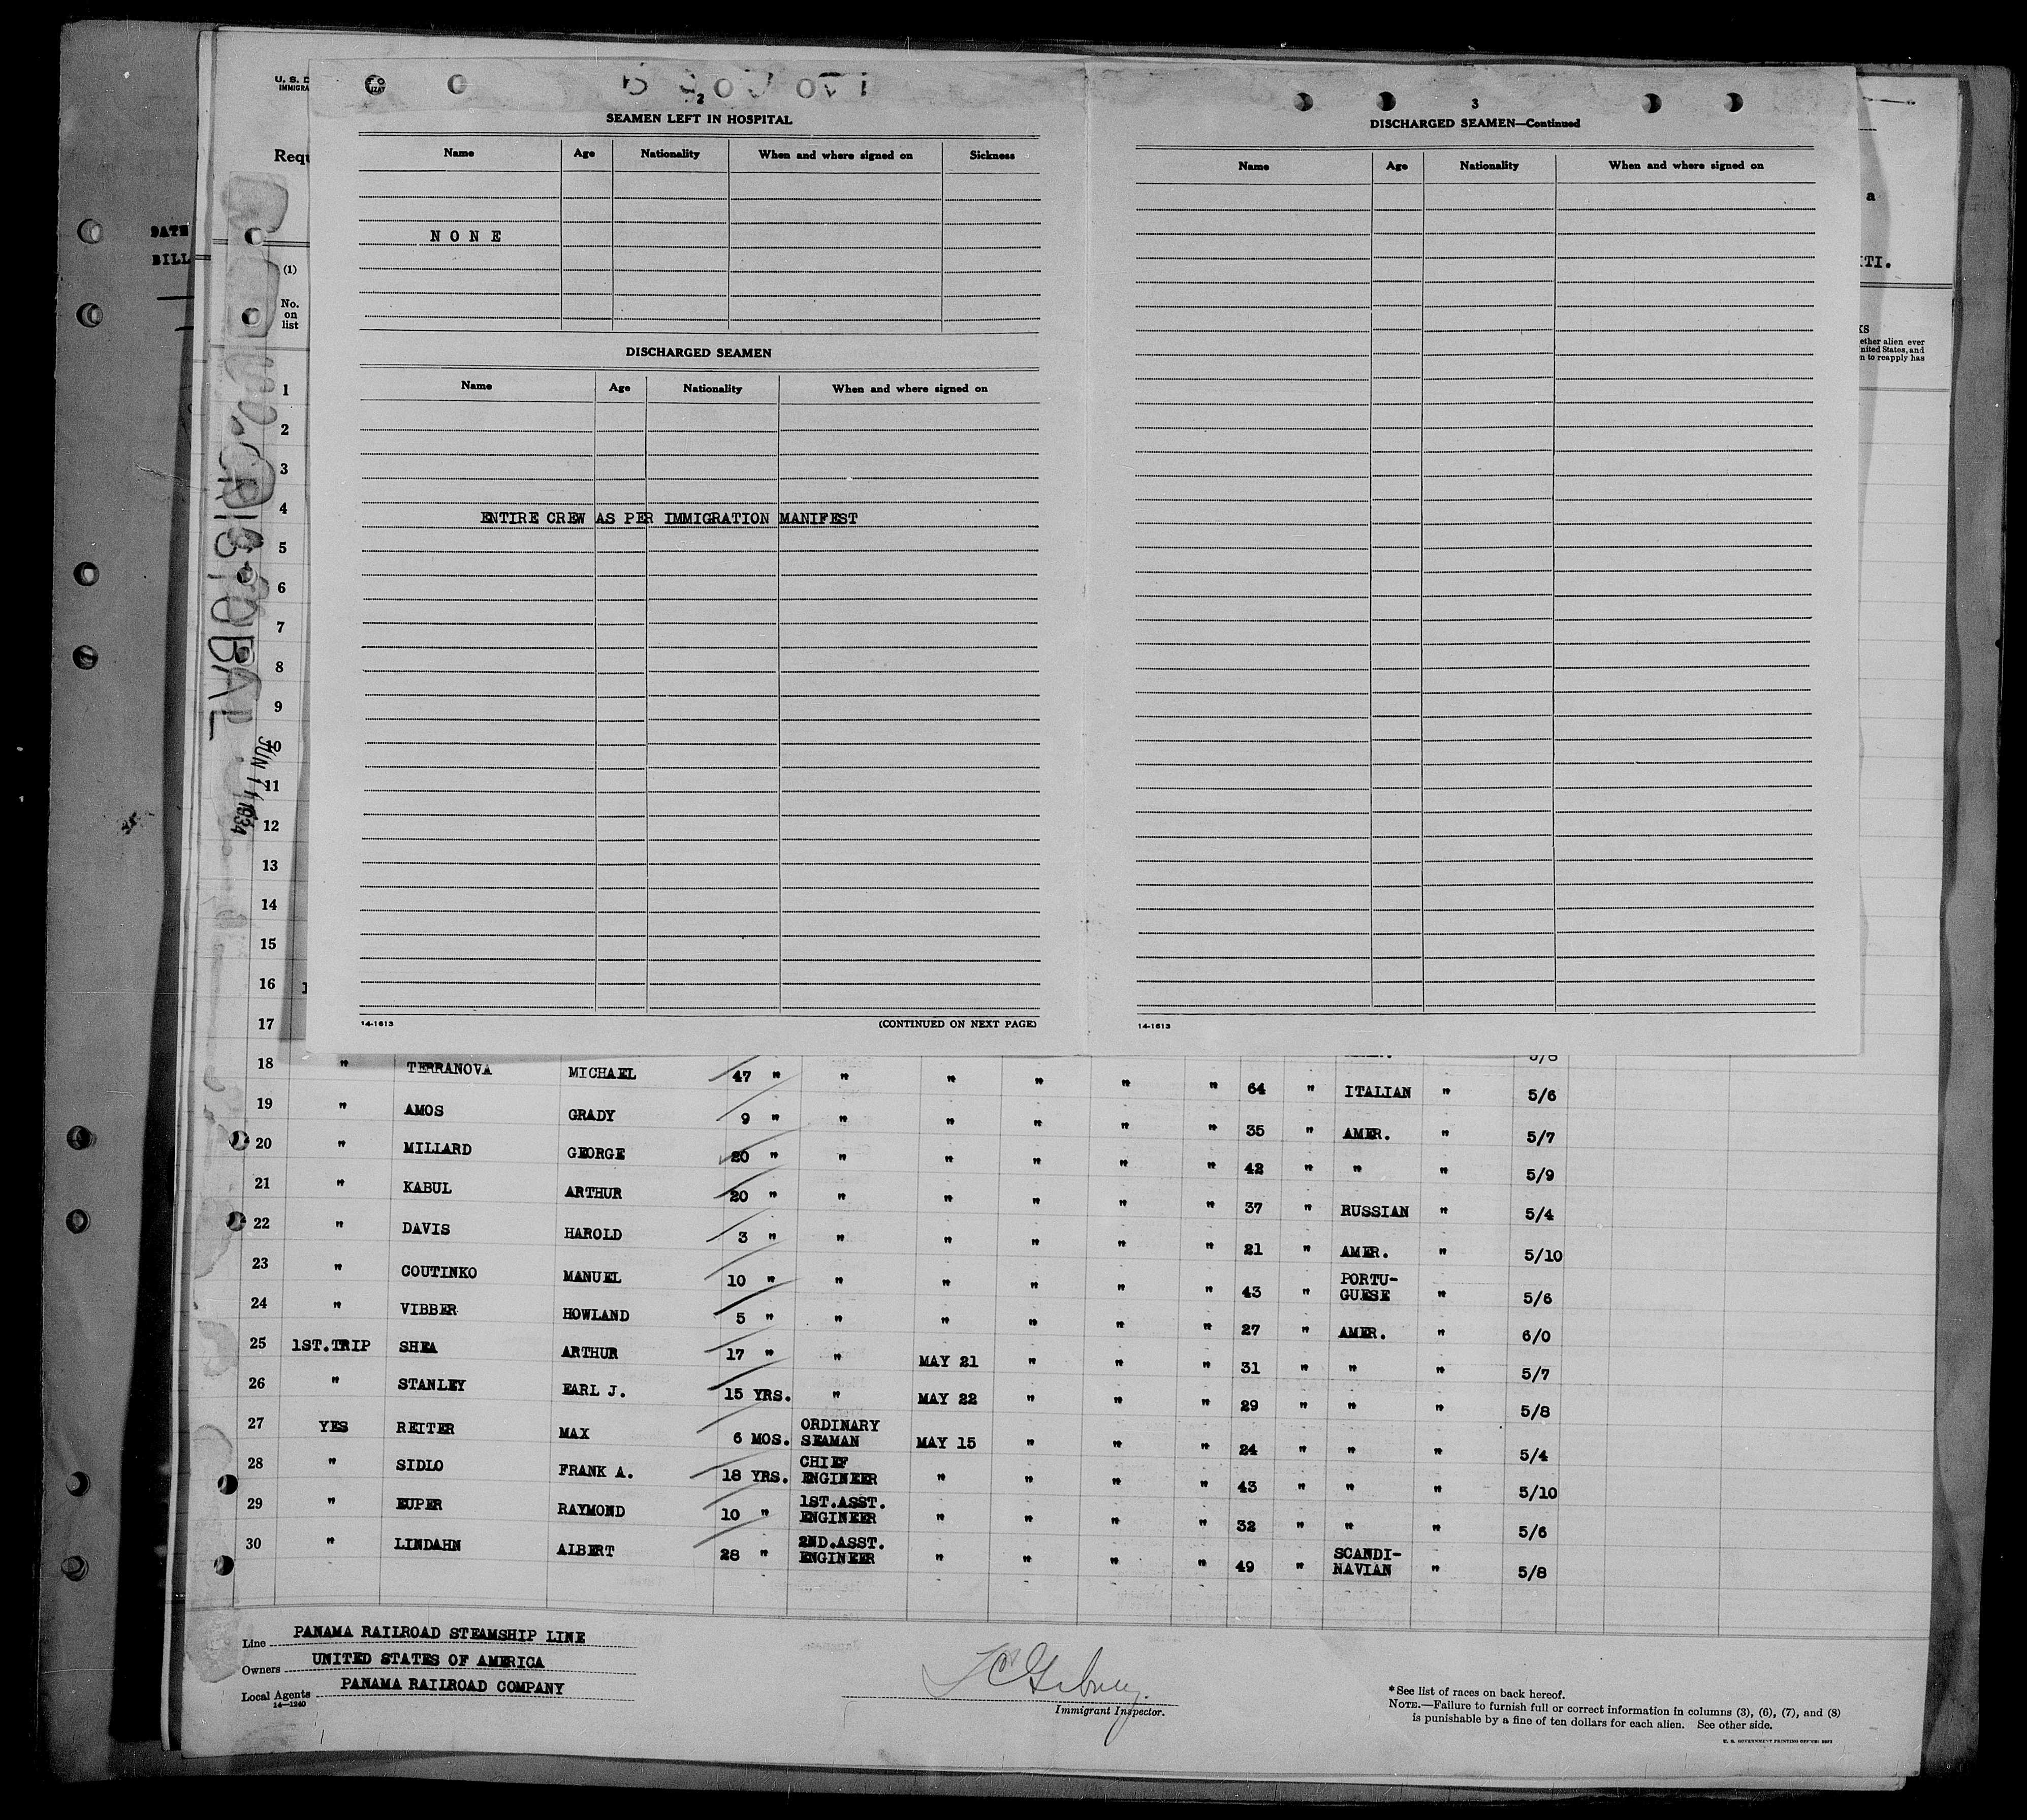 U. S. D
IMMIGRA
Requ
DATE
BILL
(1)
No.
on
list
CRISTOBAL
JUN 11 1934
2
SEAMEN LEFT IN HOSPITAL
Name Age Nationality When and where signed on Sickness
NONE
DISCHARGED SEAMEN
Name Age Nationality When and where signed on
ENTIRE CREW AS PER IMMIGRATION MANIFEST
14-1613 (CONTINUED ON NEXT PAGE)
3
DISCHARGED SEAMEN—Continued
Name Age Nationality When and where signed on
14-1613
a
ITI.
KS
ether alien ever
nited States, and
n to reapply has
1
2
3
4
5
6
7
8
9
10
11
12
13
14
15
16
17
18 " TERRANOVA MICHAEL 47 " " " " " " 64 " ITALIAN " 5/6
19 " AMOS GRADY 9 " " " " " " 35 " AMER. " 5/7
20 " MILLARD GEORGE 20 " " " " " " 42 " " " 5/9
21 " KABUL ARTHUR 20 " " " " " " 37 " RUSSIAN " 5/4
22 " DAVIS HAROLD 3 " " " " " " 21 " AMER. " 5/10
23 " COUTINKO MANUEL 10 " " " " " " 43 " PORTU-
GUESE " 5/6
24 " VIBBER HOWLAND 5 " " " " " " 27 " AMER. " 6/0
25 1ST.TRIP SHEA ARTHUR 17 " " MAY 21 " " " 31 " " " 5/7
26 " STANLEY EARL J. 15 YRS. " MAY 22 " " " 29 " " " 5/8
27 YES REITER MAX 6 MOS. ORDINARY
SEAMAN MAY 15 " " " 24 " " " 5/4
28 " SIDLO FRANK A. 18 YRS. CHIEF
ENGINEER " " " " 43 " " " 5/10
29 " EUPER RAYMOND 10 " 1ST.ASST.
ENGINEER " " " " 32 " " " 5/6
30 " LINDAHN ALBERT 28 " 2ND.ASST.
ENGINEER " " " " 49 " SCANDI-
NAVIAN " 5/8
Line PANAMA RAILROAD STEAMSHIP LINE
Owners UNITED STATES OF AMERICA
Local Agents PANAMA RAILROAD COMPANY
14—1240
Immigrant Inspector.
*See list of races on back hereof.
NOTE.—Failure to furnish full or correct information in columns (3), (6), (7), and (8)
is punishable by a fine of ten dollars for each alien. See other side.